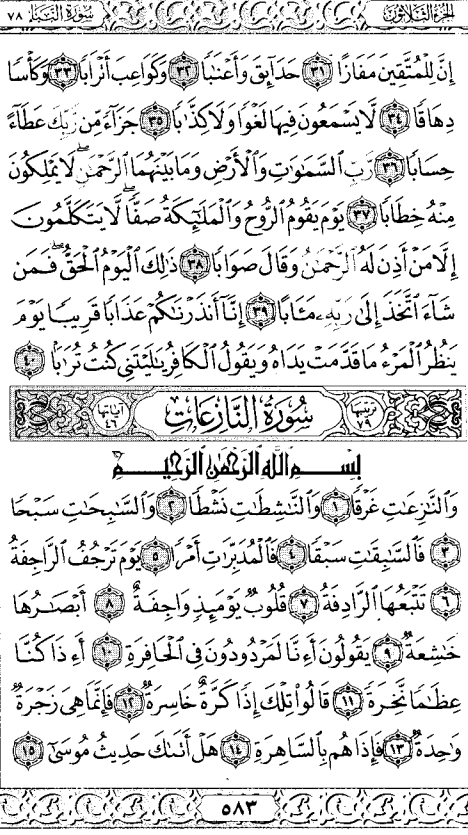 الجزء الثلاثون سورة النبإ ٧٨
إِنَّ لِلْمُتَّقِينَ مَفَازًا ٣١ حَدَآئِقَ وَأَعْنَٰبًا ٣٢ وَكَوَاعِبَ أَتْرَابًا ٣٣ وَكَأْسًا
دِهَاقًا ٣٤ لَّا يَسْمَعُونَ فِيهَا لَغْوًا وَلَا كِذَّٰبًا ٣٥ جَزَآءً مِّن رَّبِّكَ عَطَآءً
حِسَابًا ٣٦ رَّبِّ ٱلسَّمَٰوَٰتِ وَٱلْأَرْضِ وَمَا بَيْنَهُمَا ٱلرَّحْمَٰنِ ۖ لَا يَمْلِكُونَ
مِنْهُ خِطَابًا ٣٧ يَوْمَ يَقُومُ ٱلرُّوحُ وَٱلْمَلَٰٓئِكَةُ صَفًّا ۖ لَّا يَتَكَلَّمُونَ
إِلَّا مَنْ أَذِنَ لَهُ ٱلرَّحْمَٰنُ وَقَالَ صَوَابًا ٣٨ ذَٰلِكَ ٱلْيَوْمُ ٱلْحَقُّ ۖ فَمَن
شَآءَ ٱتَّخَذَ إِلَىٰ رَبِّهِۦ مَـَٔابًا ٣٩ إِنَّآ أَنذَرْنَٰكُمْ عَذَابًا قَرِيبًا يَوْمَ
يَنظُرُ ٱلْمَرْءُ مَا قَدَّمَتْ يَدَاهُ وَيَقُولُ ٱلْكَافِرُ يَٰلَيْتَنِى كُنتُ تُرَٰبًۢا ٤٠
ترتيبها ٧٩ سُورَةُ النَّازِعَاتِ آياتها ٤٦
بِسْمِ ٱللَّهِ ٱلرَّحْمَٰنِ ٱلرَّحِيمِ
وَٱلنَّٰزِعَٰتِ غَرْقًا ١ وَٱلنَّٰشِطَٰتِ نَشْطًا ٢ وَٱلسَّٰبِحَٰتِ سَبْحًا
٣ فَٱلسَّٰبِقَٰتِ سَبْقًا ٤ فَٱلْمُدَبِّرَٰتِ أَمْرًا ٥ يَوْمَ تَرْجُفُ ٱلرَّاجِفَةُ
٦ تَتْبَعُهَا ٱلرَّادِفَةُ ٧ قُلُوبٌ يَوْمَئِذٍ وَاجِفَةٌ ٨ أَبْصَٰرُهَا
خَٰشِعَةٌ ٩ يَقُولُونَ أَءِنَّا لَمَرْدُودُونَ فِى ٱلْحَافِرَةِ ١٠ أَءِذَا كُنَّا
عِظَٰمًا نَّخِرَةً ١١ قَالُوا۟ تِلْكَ إِذًا كَرَّةٌ خَاسِرَةٌ ١٢ فَإِنَّمَا هِىَ زَجْرَةٌ
وَٰحِدَةٌ ١٣ فَإِذَا هُم بِٱلسَّاهِرَةِ ١٤ هَلْ أَتَىٰكَ حَدِيثُ مُوسَىٰٓ ١٥
٥٨٣